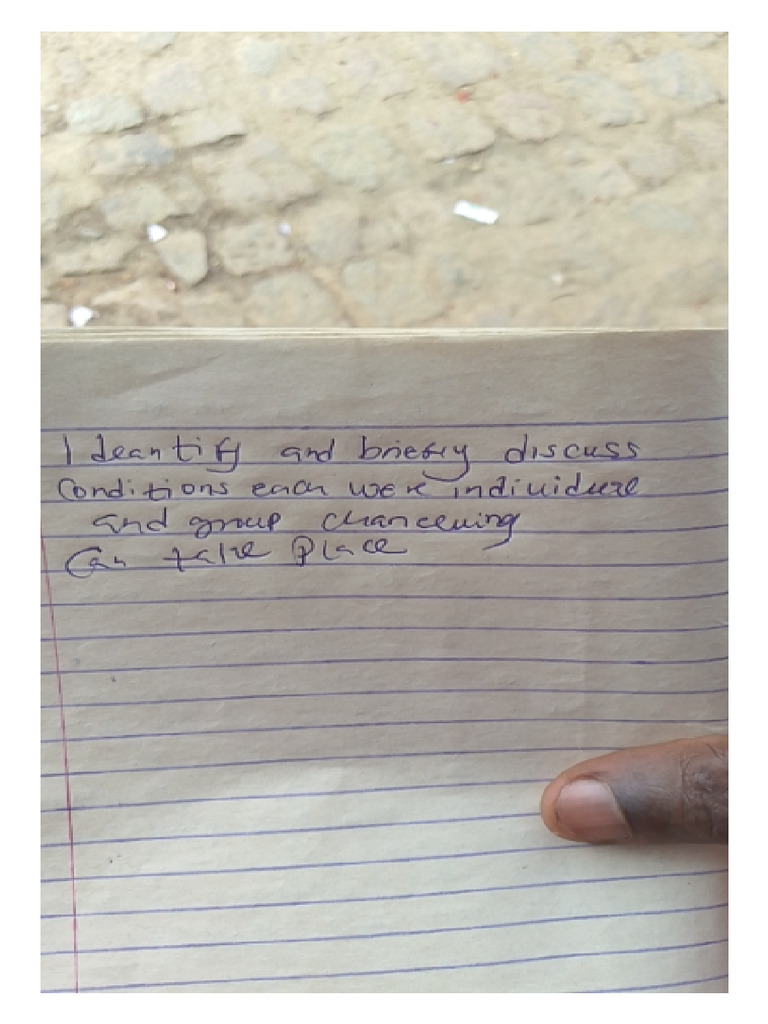 Ideantify and briefly discuss
Conditions each were individuel
and group chancelling
Can take Place